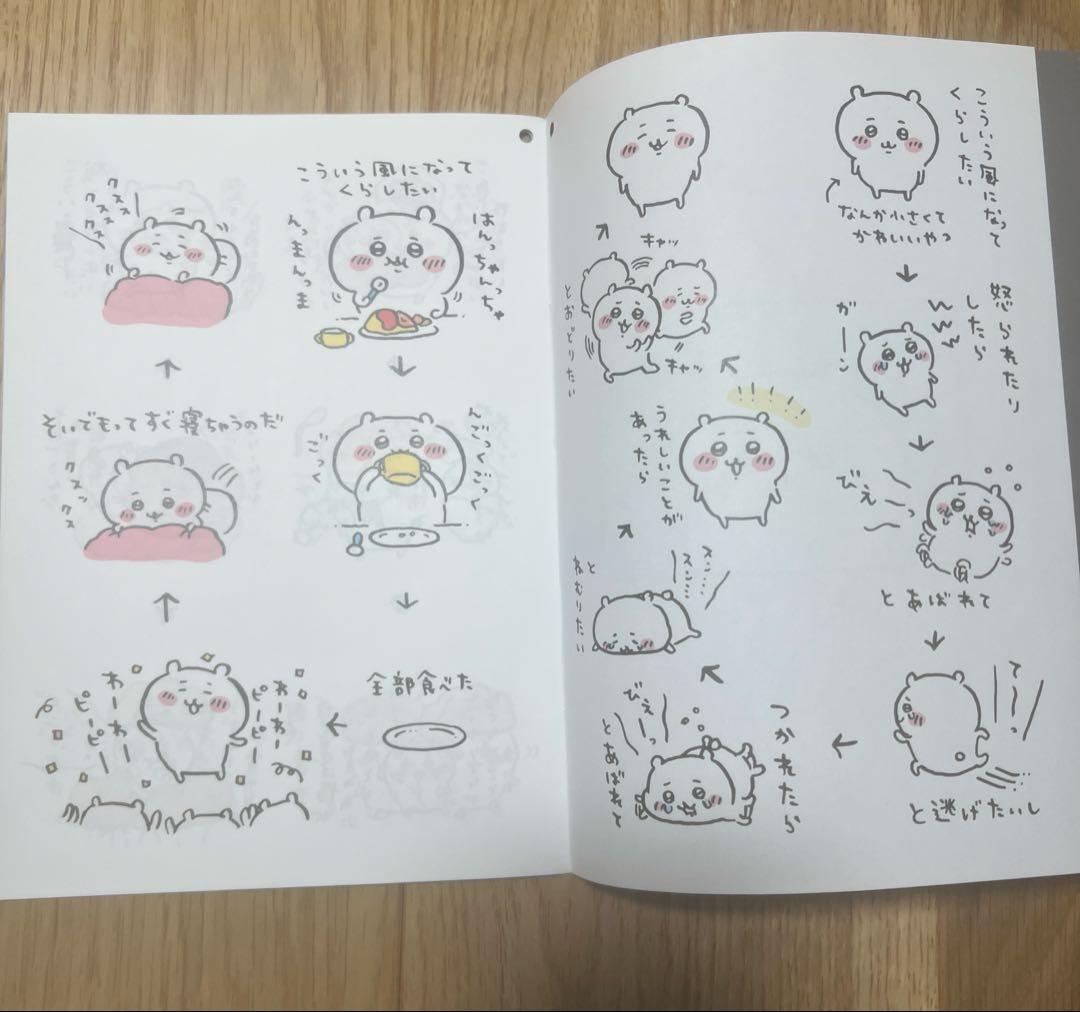 こういう風になって
くらしたい
なんか小さくて
かわいいやつ
怒られたり
したら
ガーン
びえーっ
とあばれて
てーっ
と逃げたいし
つかれたら
びえーっ
とあばれて
スン……
スン……
とねむりたい
うれしいことが
あったら
!!!!!
キャッ
キャッ
とおどりたい
こういう風になって
くらしたい
はんっちゃんっちゃ
んっまんっま
んごっくごっく
ごっく
全部食べた
わーわー
ピーピー
わーわー
ピーピー
そいでもってすぐ寝ちゃうのだ
クスッ
クス
クスス
クスス